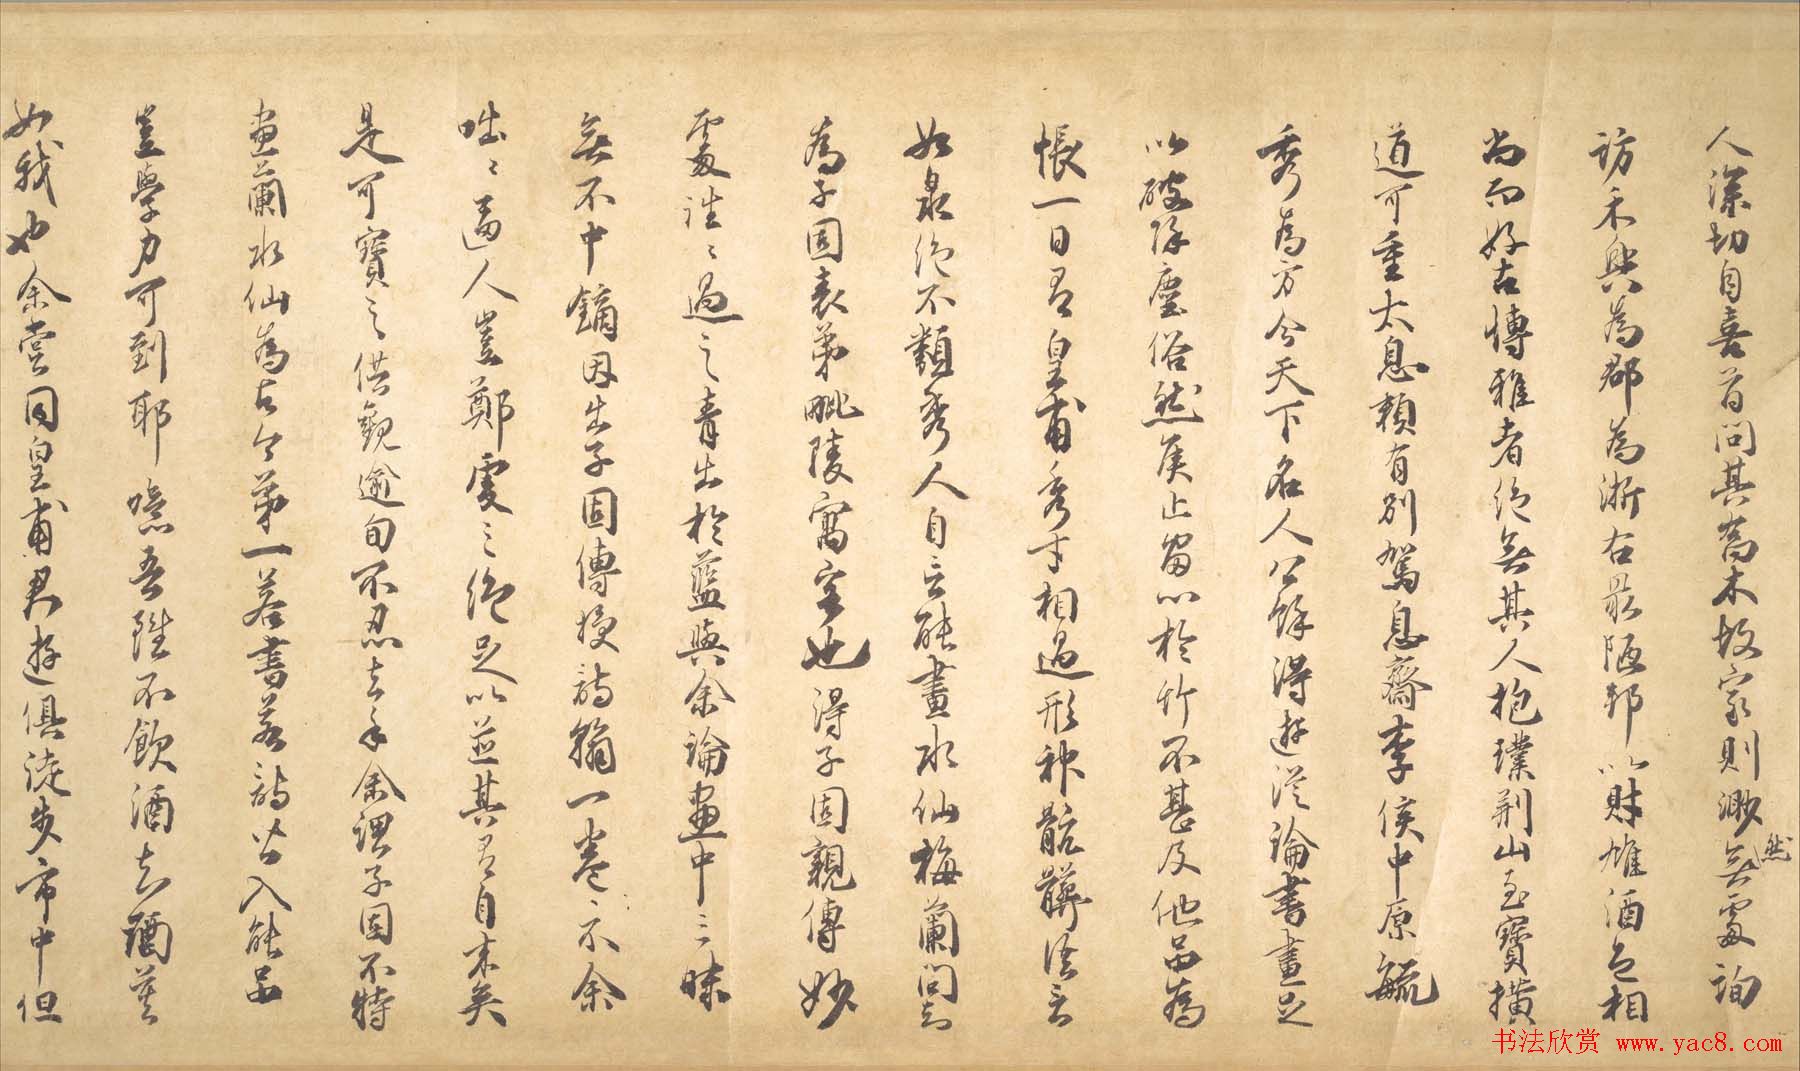 人深切自喜首問其喬木故家則渺然無處詢
訪禾興為郡為浙右最陋邦以財雄酒色相
尚而好古博雅者絕無其人抱璞荊山至寶横
道可重太息賴有別駕息齋李侯中原毓
秀為方今天下名人公餘得遊從論書畫足
以破除塵俗然侯止留心於竹不甚及他品為
悵一日有皇甫秀才相過形神骯髒語言
如泉絕不類秀人自言能畫水仙梅蘭問知
為子固表弟毗陵寓客也得子固親傳妙
處誰誰過之青出於藍與余論畫中三昧
無不中鏑因出子固傳授詩翰一卷示余
咄咄逼人豈鄭虔之絕足以並其有自来矣
是可寶之供觀逾旬不忍去手余謂子固不特
畫蘭水仙為古今第一若書若詩皆入能品
豈學力可到耶噫吾雖不飲酒知酒莫
如我也余嘗同皇甫君遊俱徒步市中但
书法欣赏 www.yac8.com